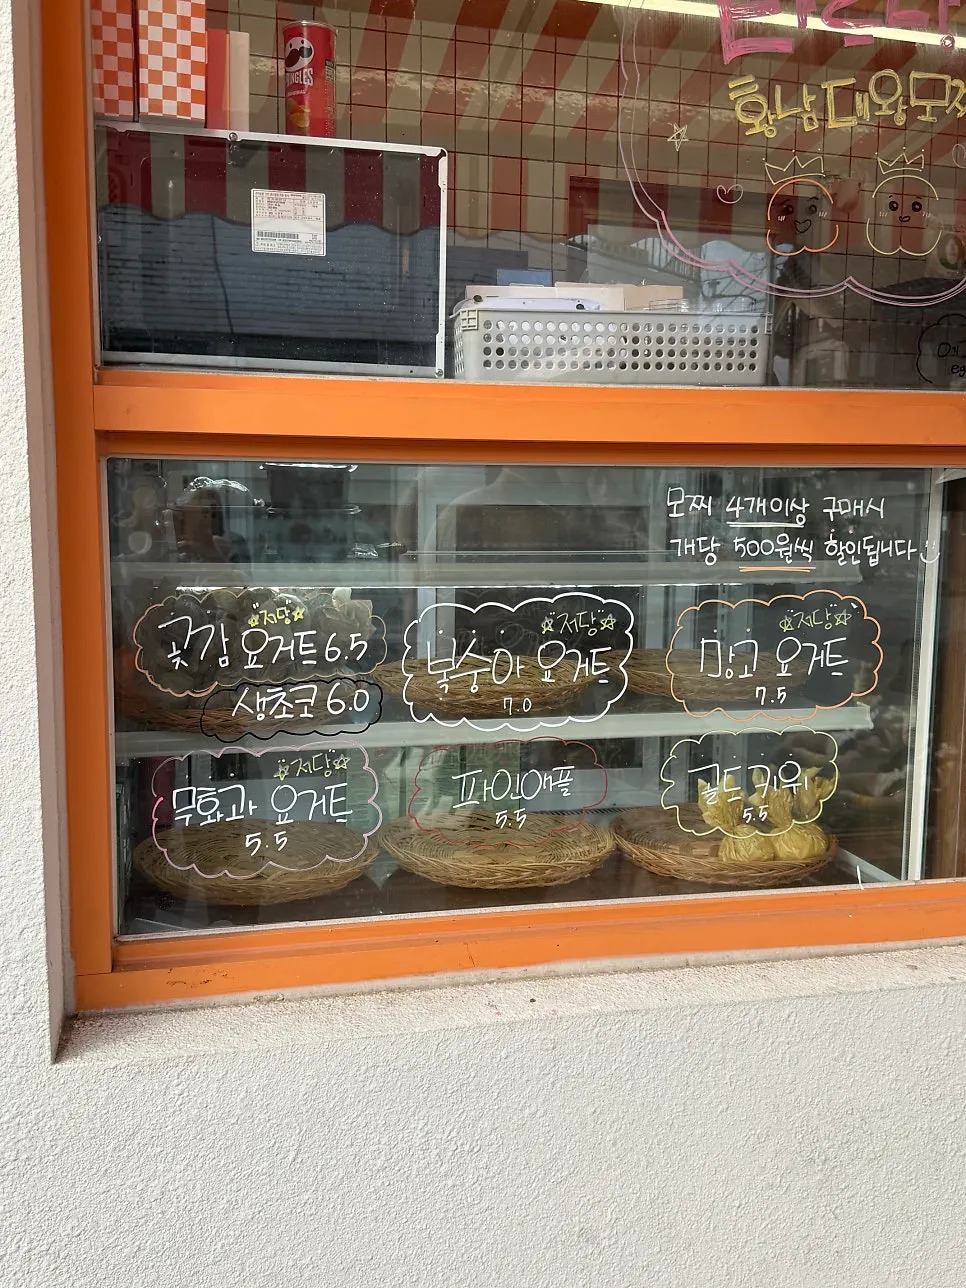 PRINGLES
ORIGINAL
황남대왕모찌
모찌 4개이상 구매시
개당 500원씩 할인됩니다
저당
곶감 요거트 6.5
생초코 6.0
저당
복숭아 요거트
7.0
저당
망고 요거트
7.5
저당
무화과 요거트
5.5
파인애플
5.5
골드키위
5.5